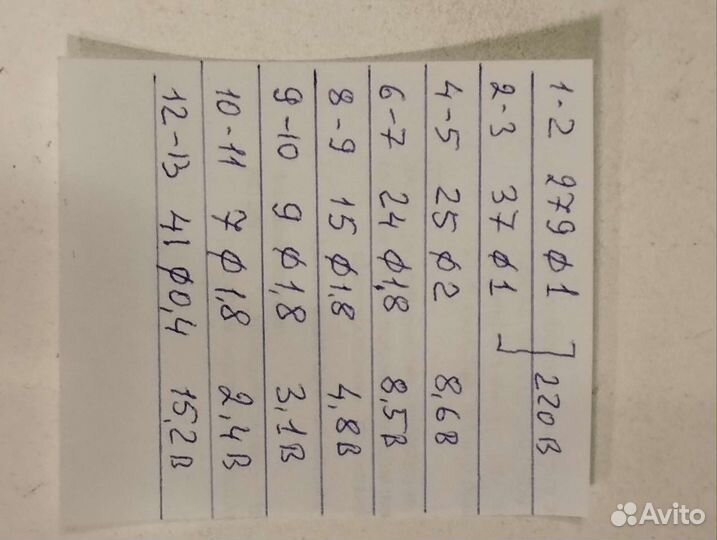 1-2 279ø1 ] 220В
2-3 37ø1
4-5 25ø2 8,6В
6-7 24ø1,8 8,5В
8-9 15ø1,8 4,8В
9-10 9ø1,8 3,1В
10-11 7ø1,8 2,4В
12-13 41ø0,4 15,2В
Avito